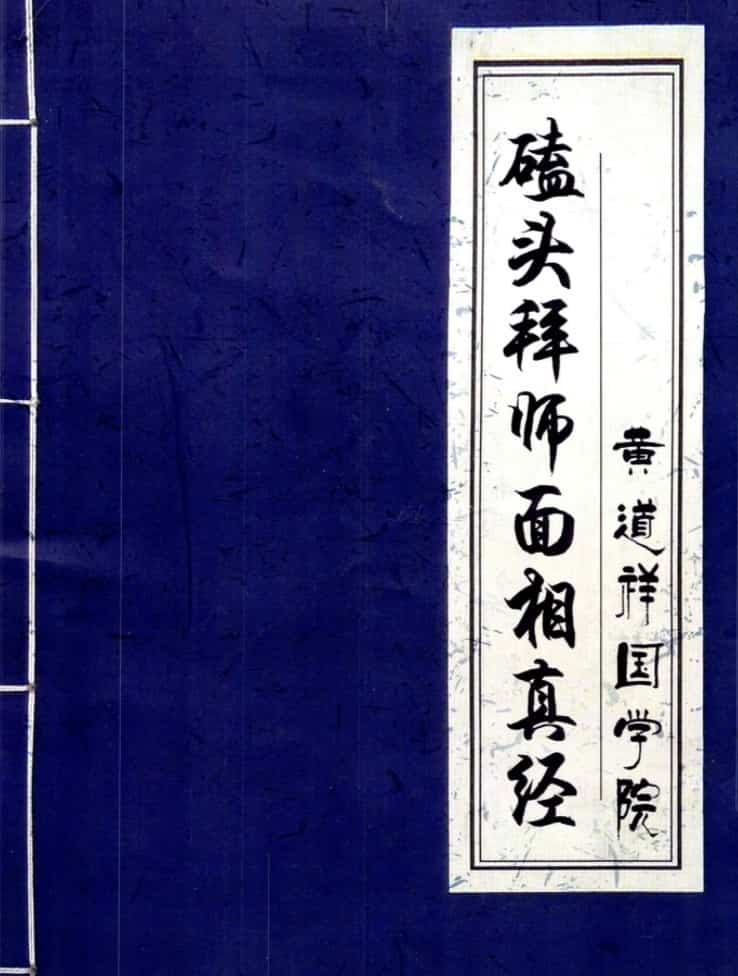 磕头拜师面相真经
黄道祥国学院